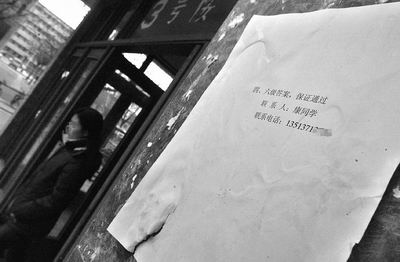 3号院
四、六级答案，保证通过
联 系 人：康同学
联系电话：1351371